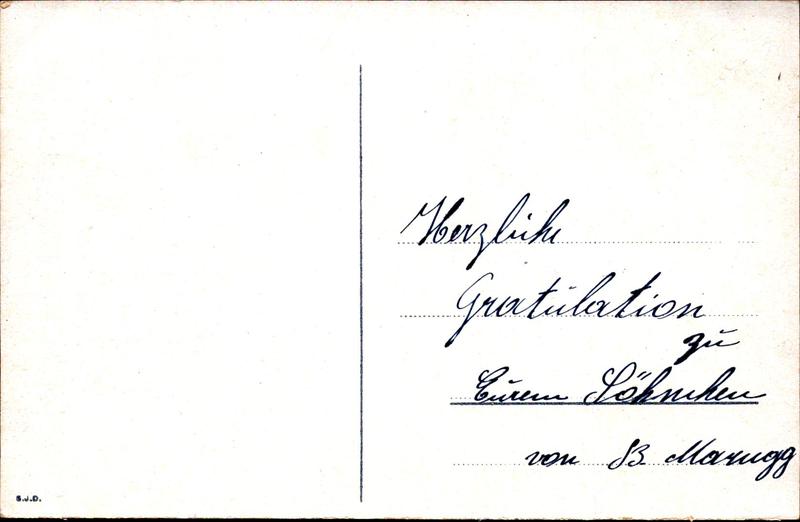 Herzliche
Gratulation
zu
Eurem Söhnchen
von B. Marugg
S.J.D.